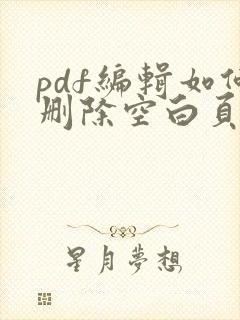 pdf編輯如何
刪除空白頁
星月夢想